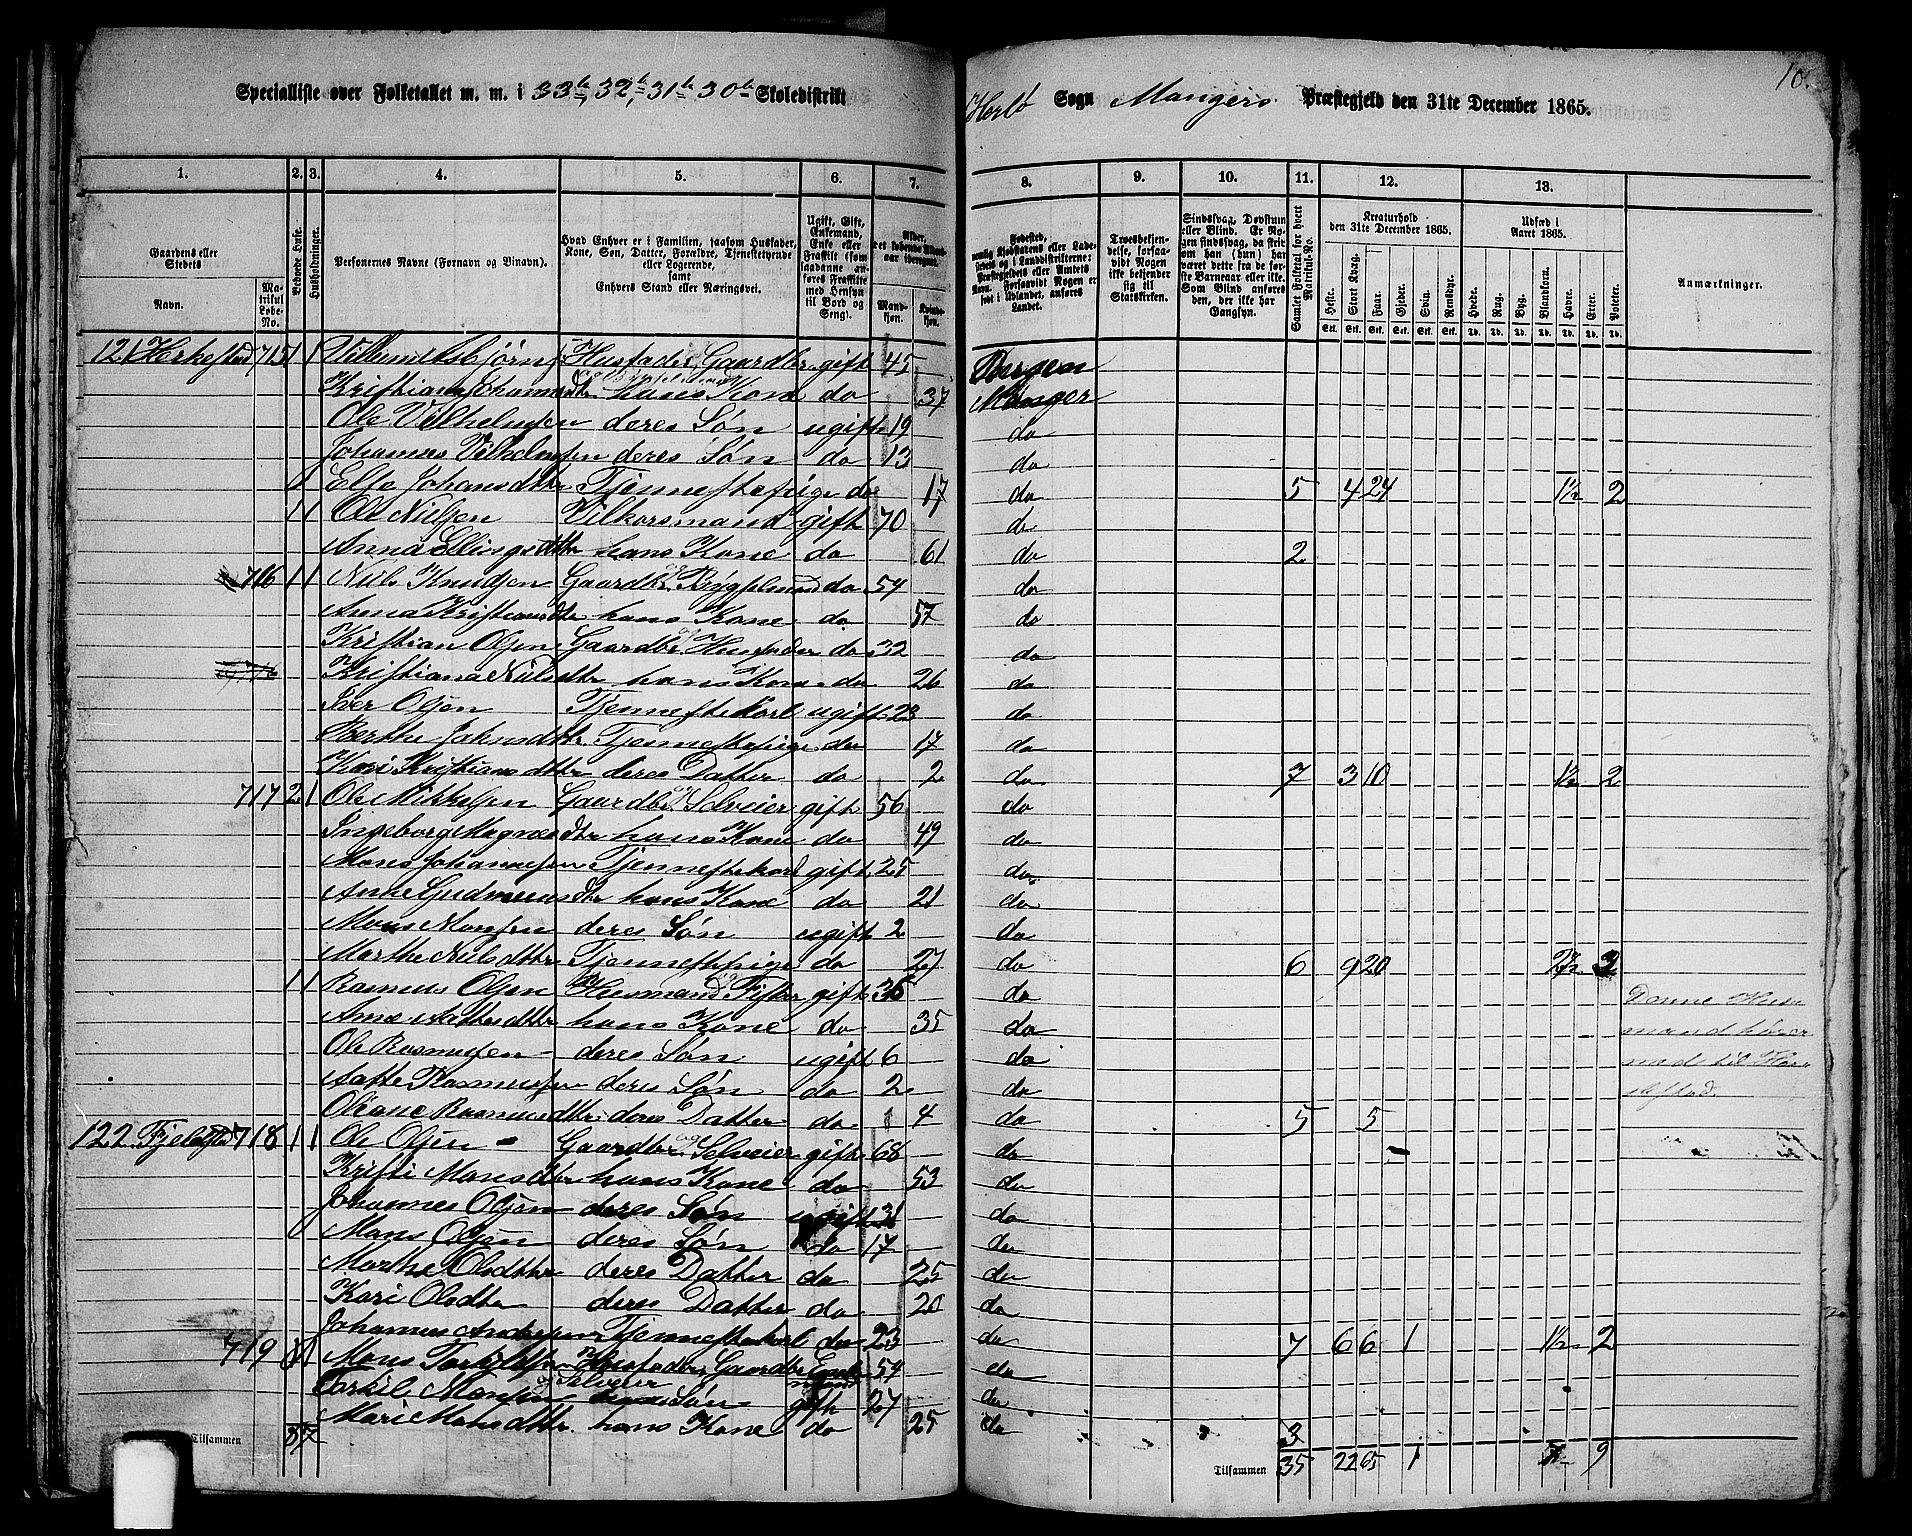 10.
Specialliste over Folketallet m. m. i 33te, 32te, 31te 30te Skoledistrikt
Herlö Sogn Mangers Præstegjeld den 31te December 1865.
1. 2. 3. 4. 5. 6. 7. 8. 9. 10. 11. 12. 13.
Gaardens eller Stedets
Navn.
Matrikul Løbe-No.
Beboede Huse.
Husholdninger.
Personernes Navne (Fornavn og Binavn).
Hvad Enhver er i Familien, saasom Husfader, Kone, Søn, Datter, Forældre, Tjenestetyende eller Logerende,
samt
Enhvers Stand eller Næringsvei.
Ugift, Gift, Enkemand, Enke eller Fraskilt (som saadanne anføres Fraskilte med Hensyn til Bord og Seng).
Alder, det løbende Aldersaar iberegnet.
Mandkjøn.
Kvindekjøn.
Fødested, nemlig Kjøbstadens eller Ladestedets og i Landdistrikterne: Præstegjeldets eller Amtets Navn. Forsaavidt Nogen er født i Udlandet, anføres Landet.
Troesbekjendelse, forsaavidt Nogen ikke bekjender sig til Statskirken.
Sindssvag, Døvstum eller Blind. Er Nogen sindssvag, da frit om han (hun) har været dette fra de første Barneaar eller ikke. Som Blind anføres den, der ikke har Gangsyn.
Samlet Folketal for hvert Matrikul-No.
Kreaturhold den 31te December 1865.
Heste. Stort Kvæg. Faar. Gjeder. Svin. Rensdyr.
Stk. Stk. Stk. Stk. Stk. Stk.
Udsæd i Aaret 1865.
Hvede. Rug. Byg. Blandkorn. Havre. Erter. Poteter.
Td. Td. Td. Td. Td. Td. Td.
Anmærkninger.
121 Herkestad 715 1 1 Vilhum Asbjørns Husfader, Gaardbr. gift 45 Bergen
Kristiane Johannesdtr. hans Kone do 37 Manger
Ole Vilhelmsen deres Søn ugift 19 do
Johannes Vilhelmsen deres Søn do 13 do
Else Johansdtr Tjennestepige do 17 do 5 4 24 1½ 2
1 1 Ole Nilsen Vilkorsmand gift 70 do
Anna Ellingsdtr hans Kone do 61 do 2
716 1 1 Nils Knudsen Gaardb. og Bygselmand do 54 do
Anna Kristiansdtr hans Kone do 57 do
Kristian Olsen Gaardb. og Husfader do 32 do
Kristiana Nilsdtr hans Kone do 26 do
Iver Olsen Tjennestekarl ugift 23 do
Berthe Johnsdtr. Tjennestepige do 17 do
Kari Kristiansdtr deres Datter do 2 do 7 3 10 1½ 2
717 2 1 Ole Mikkelsen Gaardb. og Selveier gift 56 do
Ingeborg Magnesdtr hans Kone do 49 do
Mons Johannesen Tjennestekarl gift 25 do
Anne Gudmunsdtr hans Kone do 21 do
Mons Monsen deres Søn ugift 2 do
Marthe Nilsdtr Tjennestepige do 27 do 6 9 20 2½ 3
1 1 Rasmus Olsen Husmand og Fisker gift 36 do Denne Hus
Ane Aattesdtr hans Kone do 35 do mand hører
Ole Rasmusen deres Søn ugift 6 do med til Her
Aatte Rasmussen deres Søn do 2 do kestad
Oliane Rasmusdtr. deres Datter do 4 do 5 5
122 Fjeldstad 718 1 1 Ole Olsen Gaardbr. og Selveier gift 68 do
Kristi Monsdtr hans Kone do 53 do
Johannes Olsen deres Søn ugift 31 do
Mons Olsen deres Søn do 17 do
Marthe Olsdtr deres Datter do 25 do
Kari Olsdtr deres Datter do 20 do
Johannes Andersen Tjennestekarl do 23 do 7 6 6 1 1½ 2
719 1 Mons Torkilsen Husfader, Gaardbr. Enke 54 do
og Selveier mand
Torkil Monsen hans Søn gift 27 do
Mari Monsdtr. hans Kone do 25 do 3
Tilsammen 8 7 Tilsammen 35 22 65 1 7 9